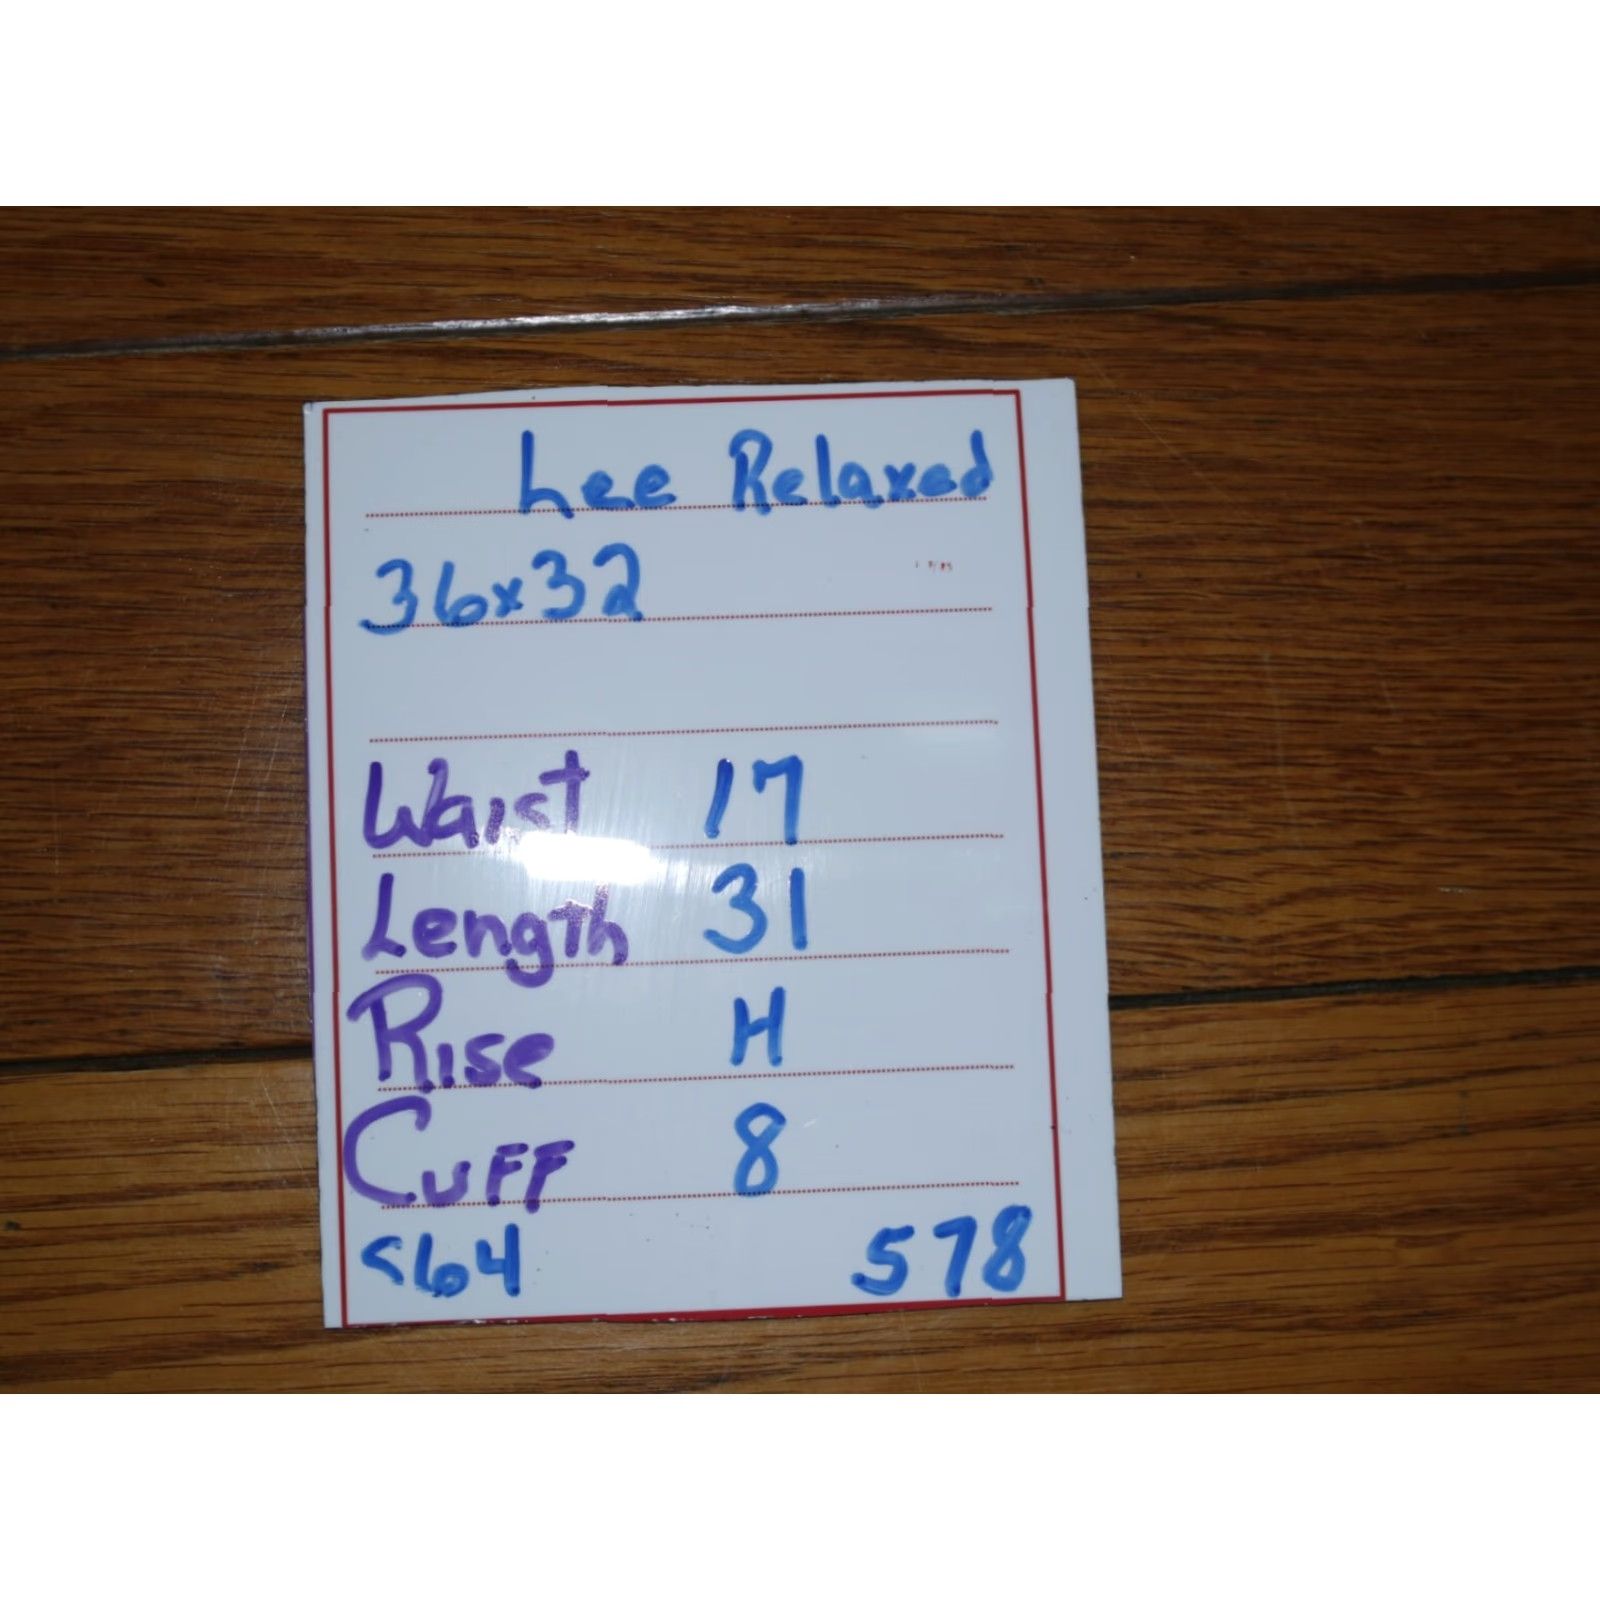 Lee Relaxed
36x32
Waist 17
Length 31
Rise H
Cuff 8
S64 578